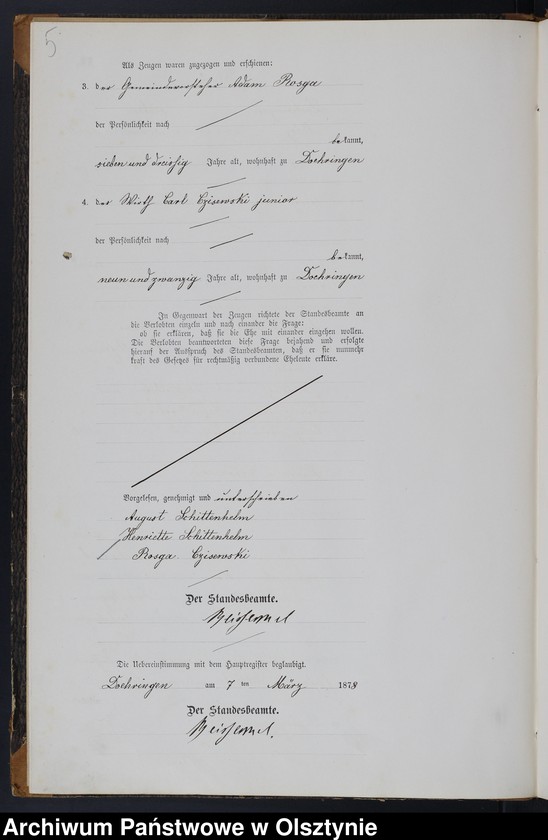 5
Als Zeugen waren zugezogen und erschienen:
3. der Gemeindevorsteher Adam Rosga
der Persönlichkeit nach
bekannt,
sieben und dreissig Jahre alt, wohnhaft zu Doehringen
4. der Wirth Carl Czisewski junior
der Persönlichkeit nach
bekannt,
neun und zwanzig Jahre alt, wohnhaft zu Doehringen
In Gegenwart der Zeugen richtete der Standesbeamte an
die Verlobten einzeln und nach einander die Frage:
ob sie erklären, daß sie die Ehe mit einander eingehen wollen.
Die Verlobten beantworteten diese Frage bejahend und erfolgte
hierauf der Ausspruch des Standesbeamten, daß er sie nunmehr
kraft des Gesetzes für rechtmäßig verbundene Eheleute erkläre.
Vorgelesen, genehmigt und unterschrieben
August Schittenhelm
Henriette Schittenhelm
Rosga. Czisewski
Der Standesbeamte.
Die Uebereinstimmung mit dem Hauptregister beglaubigt.
Doehringen am 7 ten März 1878
Der Standesbeamte.
Archiwum Państwowe w Olsztynie